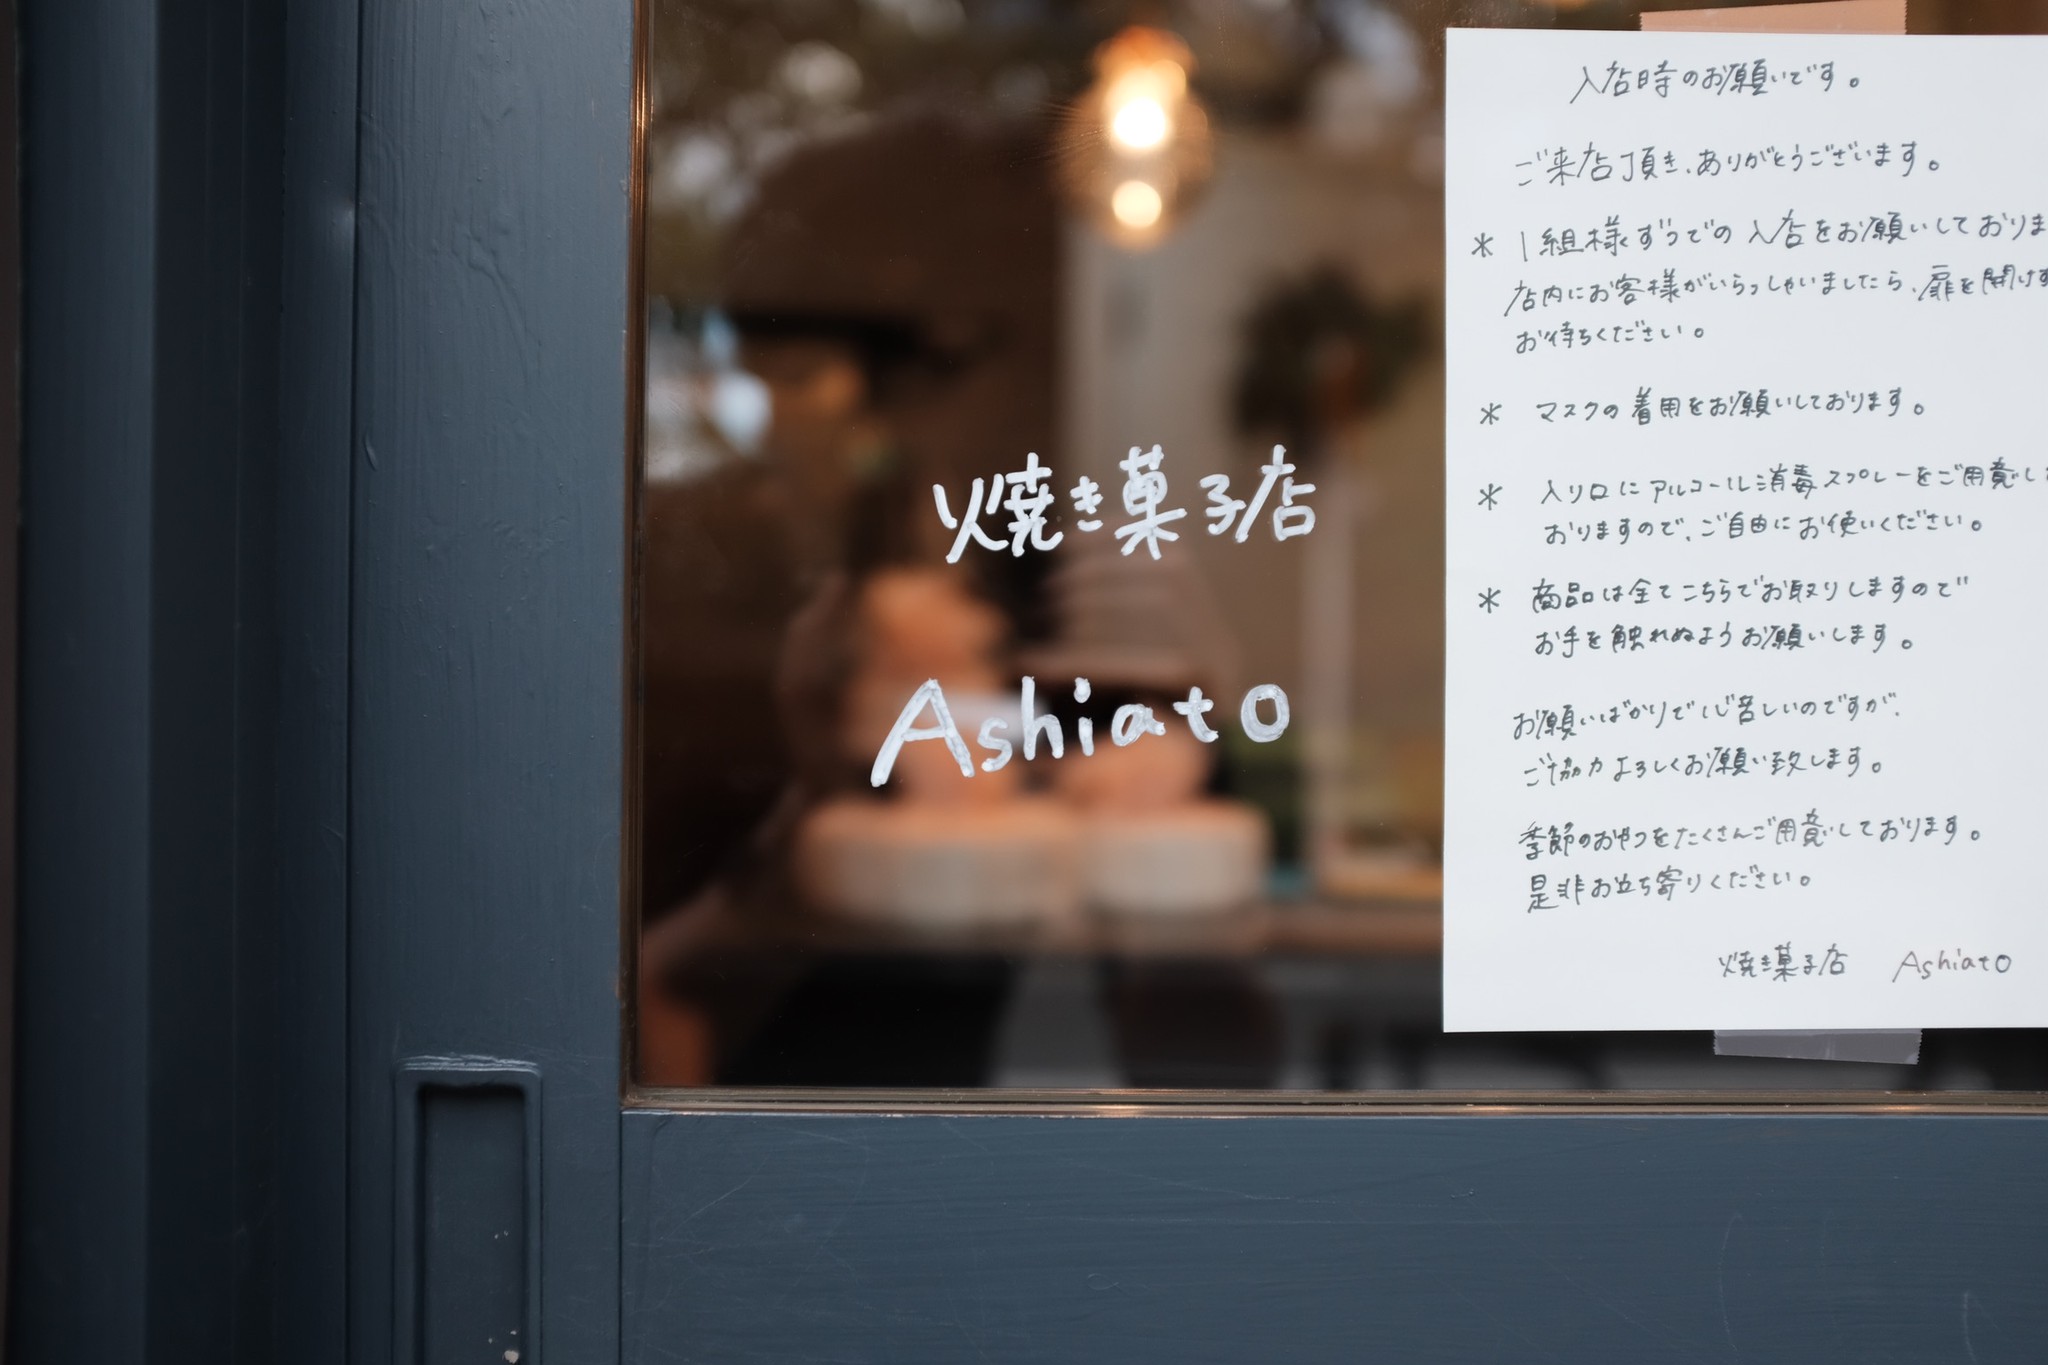 焼き菓子店
Ashiato
入店時のお願いです。
ご来店頂き、ありがとうございます。
* 1組様ずつでの入店をお願いしておりま
店内にお客様がいらっしゃいましたら、扉を開けず
お待ちください。
* マスクの着用をお願いしております。
* 入り口にアルコール消毒スプレーをご用意して
おりますので、ご自由にお使いください。
* 商品は全てこちらでお取りしますので
お手を触れぬようお願いします。
お願いばかりで心苦しいのですが、
ご協力よろしくお願い致します。
季節のおやつをたくさんご用意しております。
是非お立ち寄りください。
焼き菓子店 Ashiato